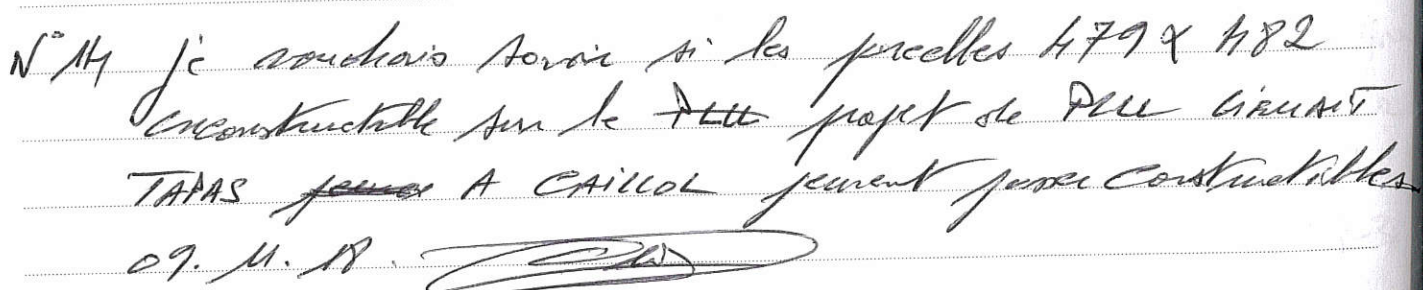 N° 14 je voudrais savoir si les parcelles 479 & 482
inconstructible sur le PLU projet de PLU LIEUDIT
TAPAS A CAILLOL peuvent passer constructibles
09. 11. 18.